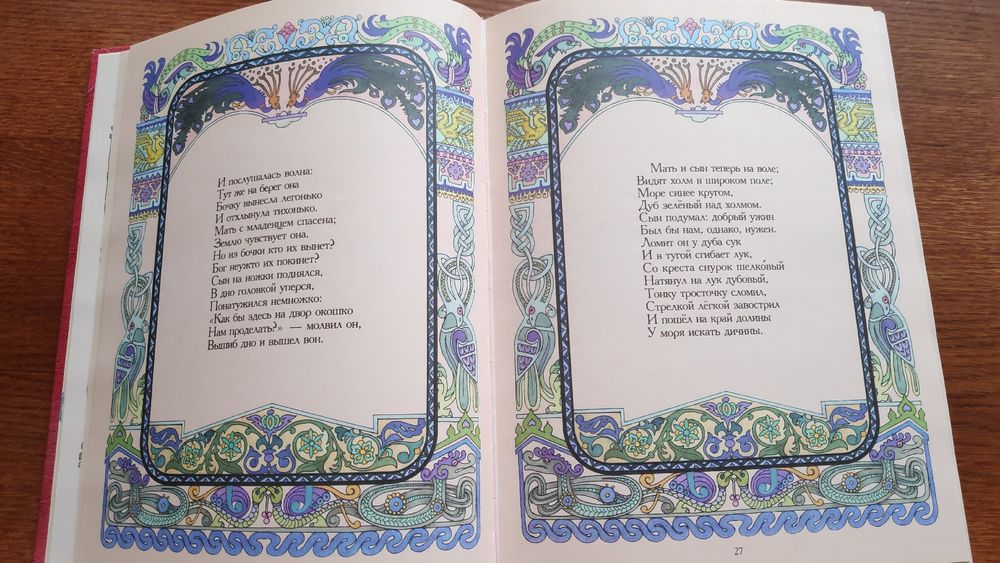 И послушалась волна:
Тут же на берег она
Бочку вынесла легонько
И отхлынула тихонько.
Мать с младенцем спасена;
Землю чувствует она.
Но из бочки кто их вынет?
Бог неужто их покинет?
Сын на ножки поднялся,
В дно головкой уперся,
Понатужился немножко:
«Как бы здесь на двор окошко
Нам проделать?» — молвил он,
Вышиб дно и вышел вон.
Мать и сын теперь на воле;
Видят холм в широком поле;
Море синее кругом,
Дуб зелёный над холмом.
Сын подумал: добрый ужин
Был бы нам, однако, нужен.
Ломит он у дуба сук
И в тугой сгибает лук,
Со креста снурок шелко́вый
Натянул на лук дубовый,
Тонку тросточку сломил,
Стрелкой лёгкой завострил
И пошёл на край долины
У моря искать дичины.
27